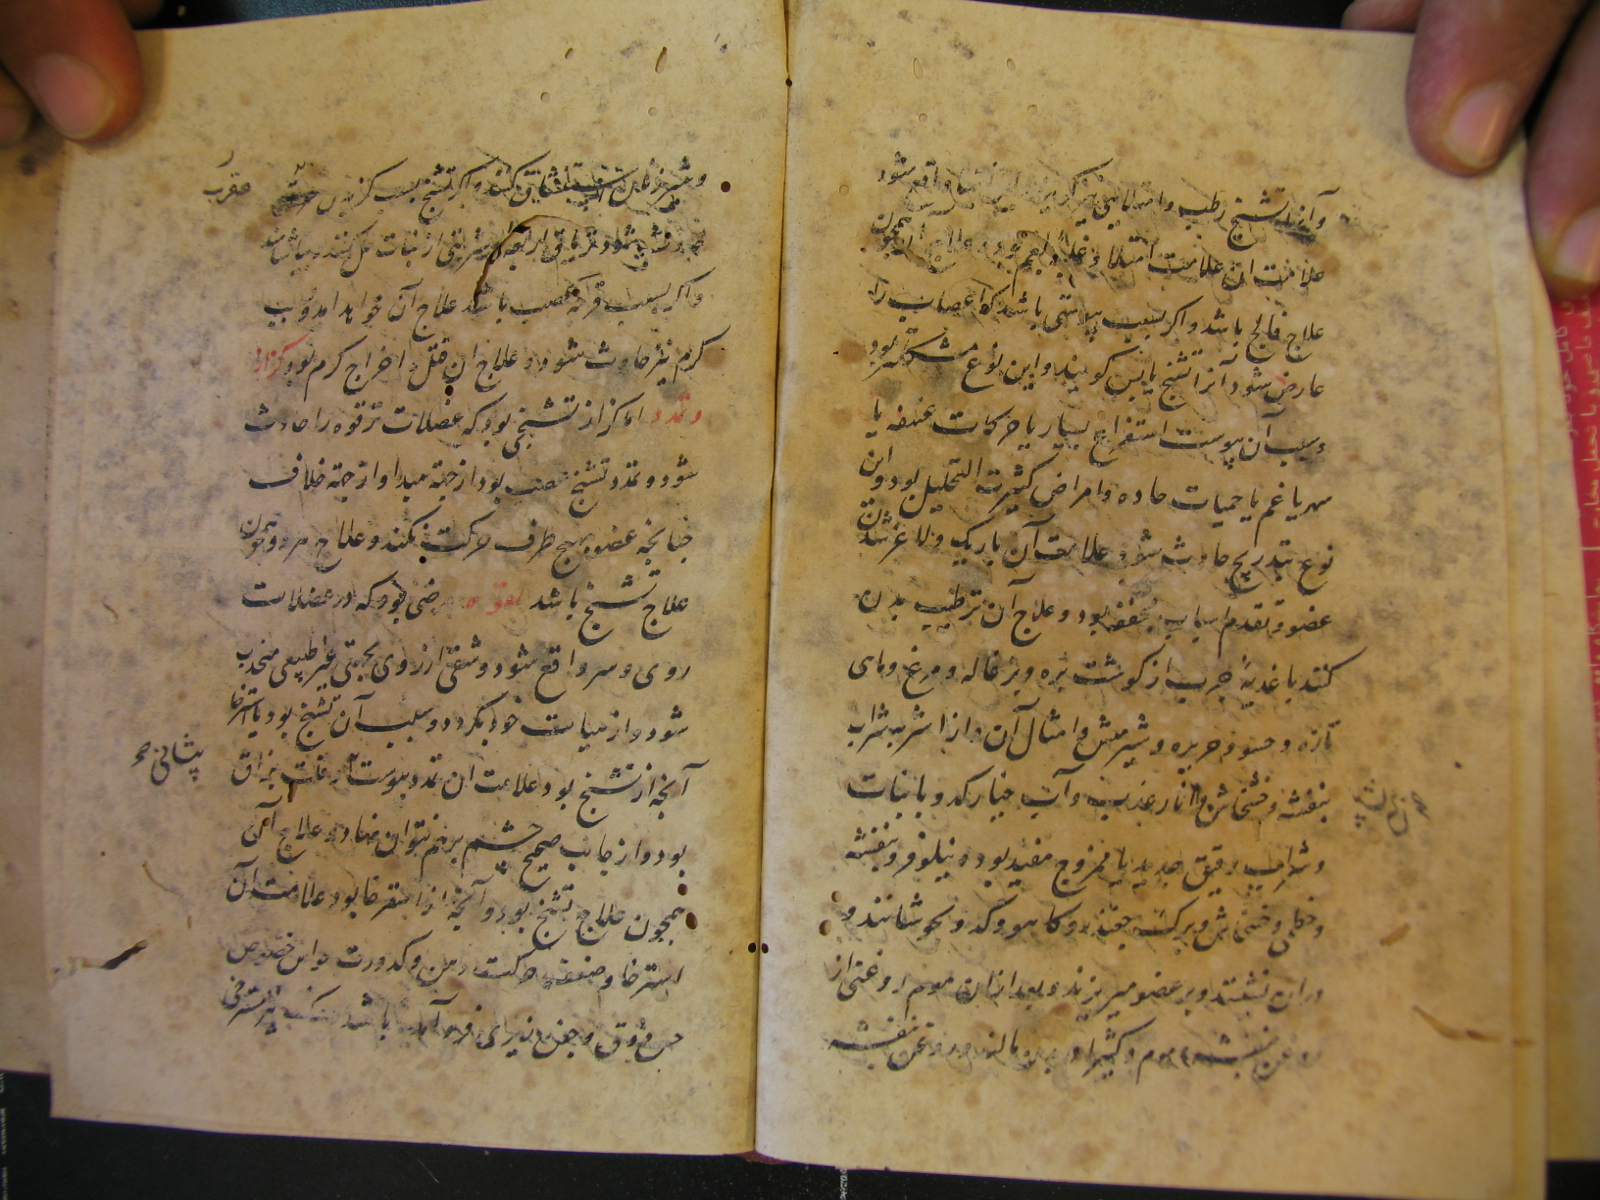 و آنرا تشنج رطب و امتلایی نیز گویند واقع شود
علامت آن علامت امتلا و غلبهٔ بلغم بود و علاج آن همچون
علاج فالج باشد و اکر بسبب یبوستی باشد که اعصاب را
عارض شود آنرا تشنج یابس کویند و این نوع مشکلتر بود
و سبب آن یبوست استفراغ بسیار یا حرکات عنیفه یا
سهر یا غم یا حمیات حاده و امراض کثیرت التحلیل بود و این
نوع بتدریج حادث شود و علامت آن باریک و لاغر شدن
عضو و تقدم اسباب مجففه بود و علاج آن ترطیب بدن
کنند باغدیهٔ چرب از کوشت بره و بزغاله و مرغ و ماهی
تازه و حسو و حریره و شیر میش و امثال آن و از اشربه شراب
بنفشه و خشخاش و انار عذب و آب خیار کدو با نبات
و شراب رقیق جدید با ممزوج مفید بود و نیلوفر و بنفشه
و خطمی و خشخاش و برک چقندر و کاهو و کدو بجوشانند و
دران نشینند و بر عضو میریزند و بعد ازان موم روغنی از
روغن بنفشه و موم و کثیرا بمالند و روغن بنفشه
و اکر تشنج بسبب کزیدن
عقرب
تریاق اربعه شربتی از نبات کل کنند
و اکر بسبب قرحه عصب باشد علاج آن خواهد آمد و بسبب
کرم نیز حادث شود و علاج آن قتل و اخراج کرم بود کزاز
و تمدد اما کزاز تشنجی بود که عضلات ترقوه را حادث
شود و تمدد تشنج عصب بود از جهة مبدا و از جهة خلاف
چنانچه عضو بهیچ طرف حرکت نکند و علاج هر دو همچون
علاج تشنج باشد لقوه مرضی بود که در عضلات
روی و سر واقع شود و شقی از روی بجهتی غیر طبیعی منجذب
شود و از هیات خود بکردد و سبب آن تشنج بود یا استرخا
آنچه از تشنج بود علامت آن تمدد پوست و قلت بزاق
پیشانی صح
بود و از جانب صحیح چشم برهم نتوان نهاد و علاج آن
همچون علاج تشنج بود و آنچه از استرخا بود علامت آن
استرخا و ضعف حرکت و لین و کدورت حواس خصوص
حس ذوق و جفن زیرین فرو آمده باشد